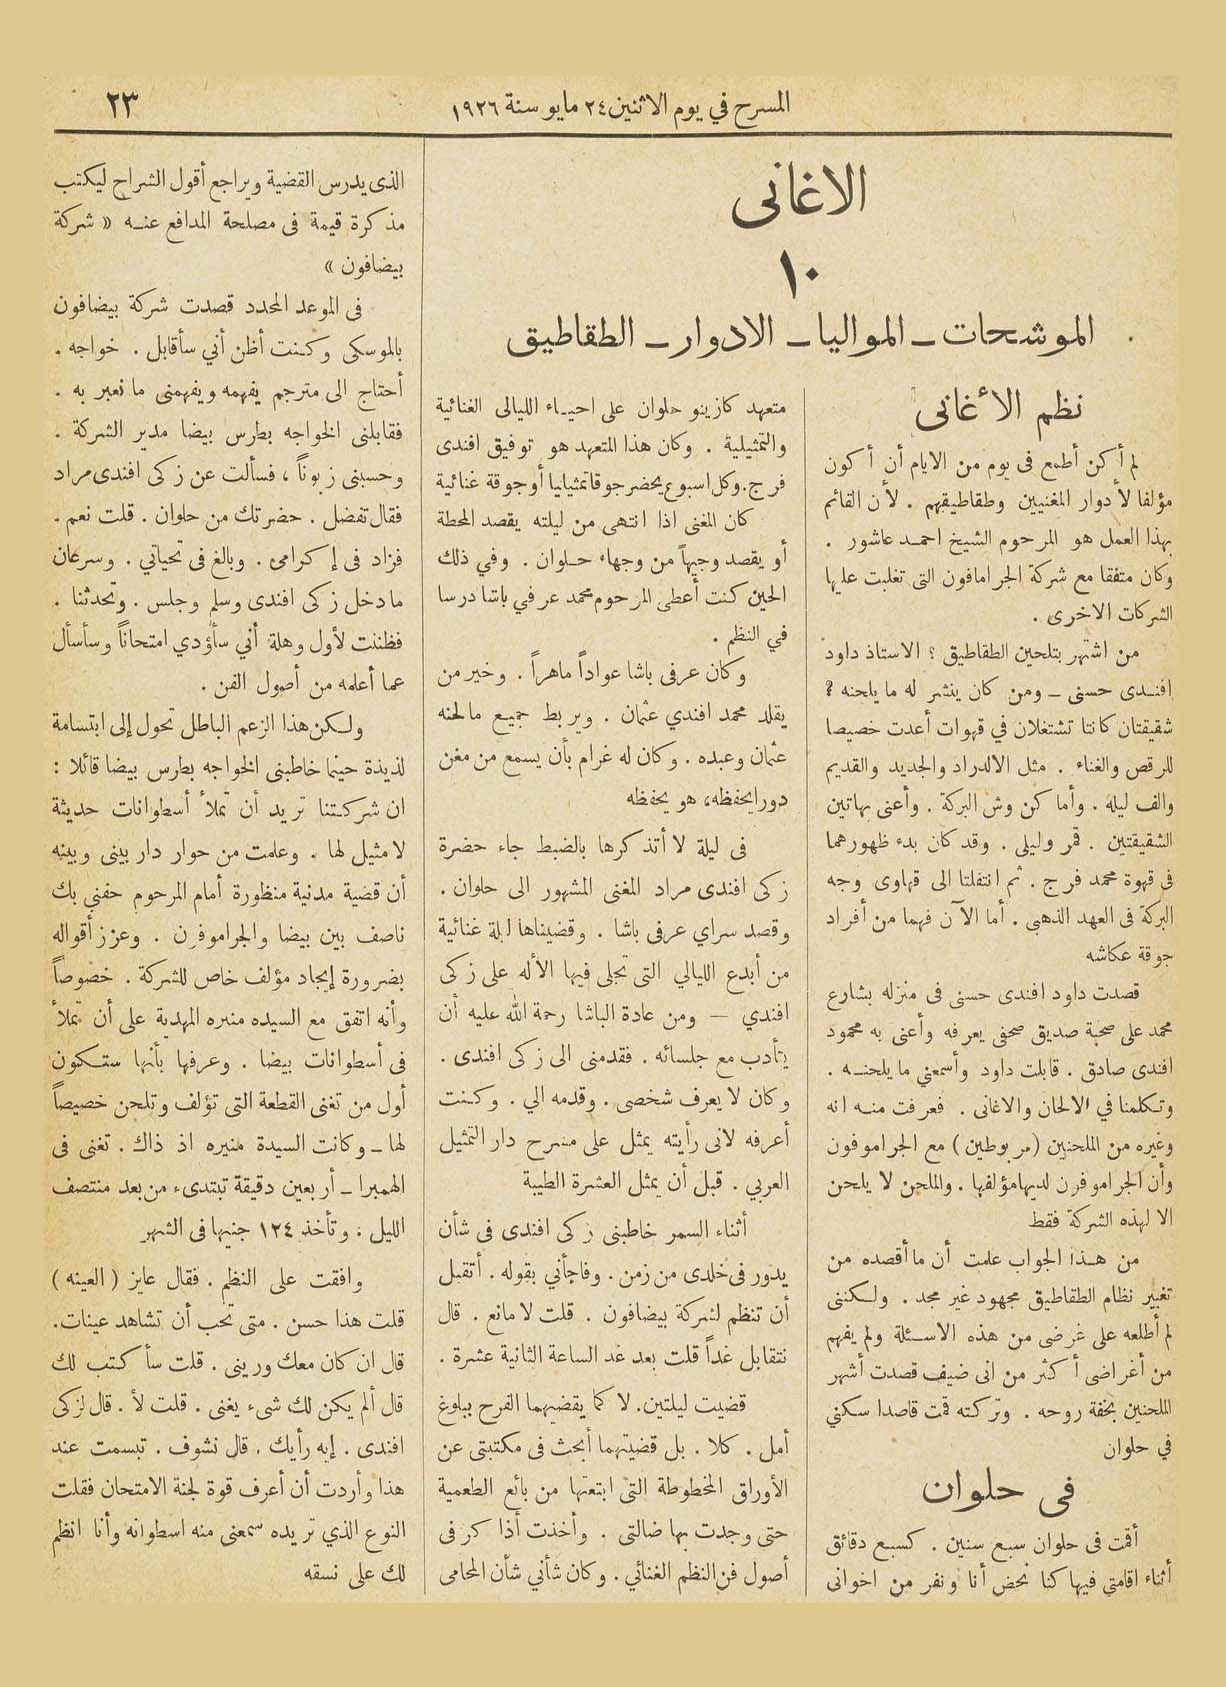 المسرح في يوم الاثنين ٢٤ مايو سنة ١٩٢٦
٢٣
الاغانى
١٠
الموشحات – المواليا – الادوار – الطقاطيق
نظم الأغانى
لم أكن أطمع فى يوم من الايام أن أكون
مؤلفا لأدوار المغنيين وطقاطيقهم . لأن القائم
بهذا العمل هو المرحوم الشيخ احمد عاشور .
وكان متفقا مع شركة الجرامافون التى تغلبت عليها
الشركات الاخرى .
من اشتهر بتلحين الطقاطيق ؟ الاستاذ داود
افندى حسنى – ومن كان ينشر له ما يلحنه ؟
شقيقتان كانتا تشتغلان في قهوات أعدت خصيصا
للرقص والغناء . مثل الالدراد والجديد والقديم
والف ليله . وأما كن وش البركة . وأعنى بهاتين
الشقيقتين . قمر وليلى . وقد كان بدء ظهورهما
فى قهوة محمد فرج . ثم انتقلتا الى قهاوى وجه
البركة فى العهد الذهبى . أما الآن فهما من أفراد
جوقة عكاشه
قصدت داود افندى حسنى فى منزله بشارع
محمد على صحبة صديق صحفى يعرفه وأعنى به محمود
افندى صادق . قابلت داود وأسمعني ما يلحنه .
وتكلمنا في الالحان والاغانى . فعرفت منه انه
وغيره من الملحنين (مربوطين) مع الجراموفون
وأن الجراموفون لديها مؤلفها . والملحن لا يلحن
الا لهذه الشركة فقط
من هذا الجواب علمت أن ما أقصده من
تغيير نظام الطقاطيق مجهود غير مجد . ولكننى
لم أطلعه على غرضى من هذه الاسئلة ولم يفهم
من أغراضى أكثر من انى ضيف قصدت أشهر
الملحنين بخفة روحه . وتركته قمت قاصدا سكني
في حلوان
فى حلوان
أقمت فى حلوان سبع سنين . كسبع دقائق
أثناء اقامتي فيها كنا نحض أنا ونفر من اخوانى
متعهد كازينو حلوان على احياء الليالى الغنائية
والتمثيلية . وكان هذا المتعهد هو توفيق افندى
فرج. وكل اسبوع يحضر جوقا تمثيليا أو جوقة غنائية
كان المغنى اذا انتهى من ليلته يقصد المحطة
أو يقصد وجيهاً من وجهاء حلوان . وفي ذلك
الحين كنت أعطى المرحوم محمد عرفي باشا درسا
في النظم .
وكان عرفى باشا عواداً ماهراً . وخير من
يقلد محمد افندي عثمان . ويربط جميع ما لحنه
عثمان وعبده . وكان له غرام بأن يسمع من مغن
دورا يحفظه، هو يحفظه
فى ليلة لا أتذكرها بالضبط جاء حضرة
زكى افندى مراد المغنى المشهور الى حلوان .
وقصد سراي عرفى باشا . وقضيناها ليلة غنائية
من أبدع الليالي التى تجلى فيها الأله على زكى
افندي — ومن عادة الباشا رحمة الله عليه أن
يتأدب مع جلسائه . فقدمنى الى زكى افندى .
وكان لا يعرف شخصى . وقدمه الي . وكنت
أعرفه لانى رأيته يمثل على مسرح دار التمثيل
العربي . قبل أن يمثل العشرة الطيبة
أثناء السمر خاطبنى زكى افندى فى شأن
يدور فى خلدى من زمن . وفاجأني بقوله . أتقبل
أن تنظم لشركة بيضافون . قلت لا مانع . قال
نتقابل غداً قلت بعد غد الساعة الثانية عشرة .
قضيت ليلتين . لا كما يقضيهما الفرح ببلوغ
أمل . كلا . بل قضيتهما أبحث فى مكتبتى عن
الأوراق المخطوطة التى ابتعتها من بائع الطعمية
حتى وجدت بها ضالتى . وأخذت أذاكر فى
أصول فن النظم الغنائي . وكان شأني شأن المحامى
الذى يدرس القضية ويراجع أقول الشراح ليكتب
مذكرة قيمة فى مصلحة المدافع عنه « شركة
بيضافون »
فى الموعد المحدد قصدت شركة بيضافون
بالموسكى وكنت أظن أني سأقابل . خواجه .
أحتاج الى مترجم يفهمه ويفهمنى ما نعبر به .
فقابلنى الخواجه بطرس بيضا مدير الشركة .
وحسبنى زبوناً ، فسألت عن زكى افندى مراد
فقال تفضل . حضرتك من حلوان . قلت نعم .
فزاد فى إكرامى . وبالغ فى تحياتي . وسرعان
ما دخل زكى افندى وسلم وجلس . وتحدثنا .
فظننت لأول وهلة أني سأؤدي امتحاناً وسأسأل
عما أعلمه من أصول الفن .
ولكن هذا الزعم الباطل تحول إلى ابتسامة
لذيذة حينما خاطبنى الخواجه بطرس بيضا قائلا :
ان شركتنا تريد أن تملأ أسطوانات حديثة
لا مثيل لها . وعلمت من حوار دار بينى وبينه
أن قضية مدنية منظورة أمام المرحوم حفني بك
ناصف بين بيضا والجراموفون . وعزز أقواله
بضرورة إيجاد مؤلف خاص للشركة . خصوصاً
وأنه اتفق مع السيده منيره المهدية على أن تملأ
فى أسطوانات بيضا . وعرفها بأنها ستكون
أول من تغنى القطعة التى تؤلف وتلحن خصيصاً
لها – وكانت السيدة منيره اذ ذاك . تغنى فى
الهمبرا – أربعين دقيقة تبتدىء من بعد منتصف
الليل . وتأخذ ١٢٤ جنيها فى الشهر
وافقت على النظم . فقال عايز ( العينه )
قلت هذا حسن . متى تحب أن تشاهد عينات .
قال ان كان معك ورينى . قلت سأكتب لك
قال ألم يكن لك شىء يغنى . قلت لأ . قال لزكى
افندى . إيه رأيك . قال نشوف . تبسمت عند
هذا وأردت أن أعرف قوة لجنة الامتحان فقلت
النوع الذي تريده سمعنى منه اسطوانه وأنا انظم
لك على نسقه